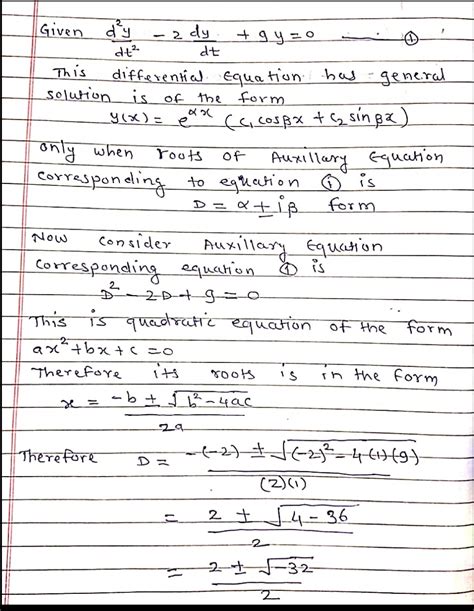 Given d²y/dt² - 2 dy/dt + 9y = 0 ------ ①
This differential Equation has general
solution is of the form
y(x) = e^{αx} (c₁cosβx + c₂sinβx)
only when roots of Auxillary Equation
corresponding to equation ① is
D = α ± iβ form
Now consider Auxillary Equation
Corresponding equation ① is
D² - 2D + 9 = 0
This is quadratic equation of the form
ax² + bx + c = 0
Therefore its roots is in the form
x = (-b ± √(b² - 4ac))/2a
Therefore D = (-(-2) ± √((-2)² - 4(1)(9)))/(2)(1)
= (2 ± √(4 - 36))/2
= (2 ± √(-32))/2